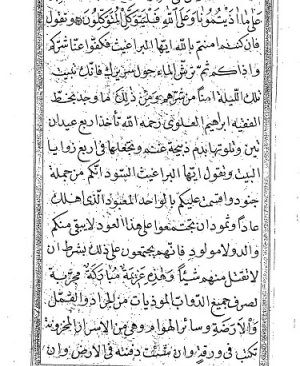 على ما اذيتمونا وعلى الله فليتوكل المتوكلون وتقول
فان كنتم امنتم بالله ايها البراغيث فكفوا عنا شركم
واذاكم ثم ترش الماء حول سريرك فانك تبيت
تلك الليلة امنا من شرهم ومن ذلك ما وجد بخط
الفقيه ابراهيم العلوي رحمه الله تأخذ اربع عيدان
تين وتلوثها بدم ذبيحة غنم وتجعلها في اربع زوايا
البيت وتقول ايها البراغيث السود انكم من جملة
جنود اقسمت عليكم بالواحد المعبود الذي اهلك
عادا وثمودا ان تجتمعوا على هذا العود لا يبقى منكم
والد ولا مولود فانهم يجتمعون على ذلك بشرط ان
لا تقتل منهم شيئا وهذه عزيمة مباركة مجربة
لصرف جميع الدواب الموذيات من الجراد والقمل
والارضة وسائر الهوام وهي من الاسرار المخزونة
تكتب في ورقة وان شئت دفنته في الارض وان